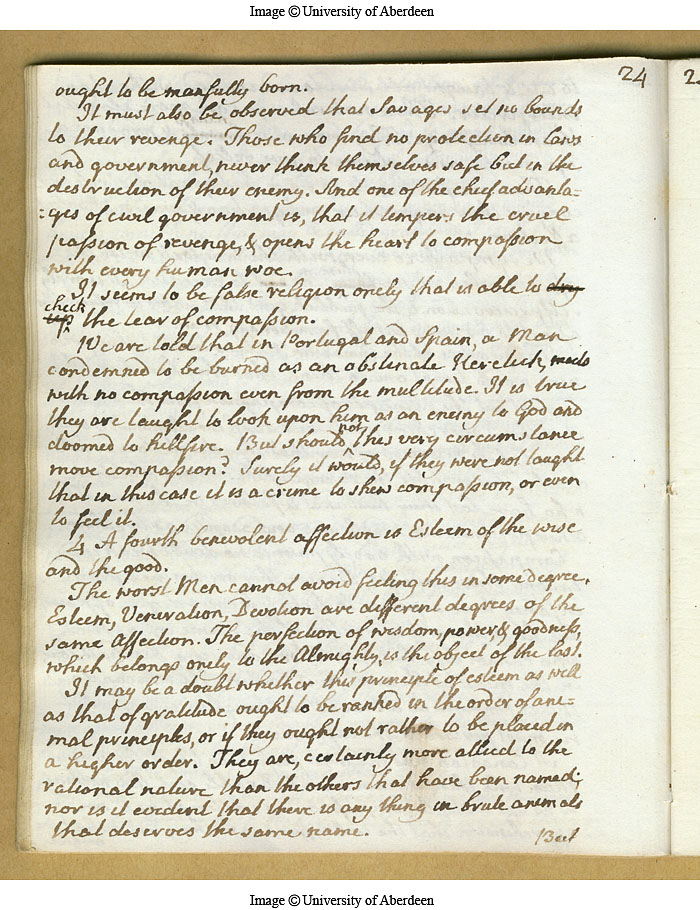 Image © University of Aberdeen
24
2
ought to be manfully born.
It must also be observed that Savages set no bounds
to their revenge. Those who find no protection in laws
and government, never think themselves safe but in the
destruction of their enemy. And one of the chief advanta-
=ges of civil government is, that it tempers the cruel
passion of revenge, & opens the heart to compassion
with every human woe.
It seems to be false religion onely that is able to dry
check
up the tear of compassion.
We are told that in Portugal and Spain, a Man
condemned to be burned as an obstinate Heretick, meets
with no compassion even from the multitude. It is true
they are taught to look upon him as an enemy to God and
not
doomed to hellfire. But should this very circumstance
move compassion? Surely it would, if they were not taught
that in this case it is a crime to shew compassion, or even
to feel it.
4 A fourth benevolent affection is Esteem of the wise
and the good.
The worst Men cannot avoid feeling this in some degree.
Esteem, Veneration, Devotion are different degrees of the
same Affection. The perfection of wisdom, power & goodness,
which belongs onely to the Almighty, is the object of the last.
It may be a doubt whether this principle of esteem as well
as that of gratitude ought to be ranked in the order of ani=
mal principles, or if they ought not rather to be placed in
a higher order. They are, certainly more allied to the
rational nature than the others that have been named;
nor is it evident that there is any thing in brute animals
that deserves the same name.
But
Image © University of Aberdeen